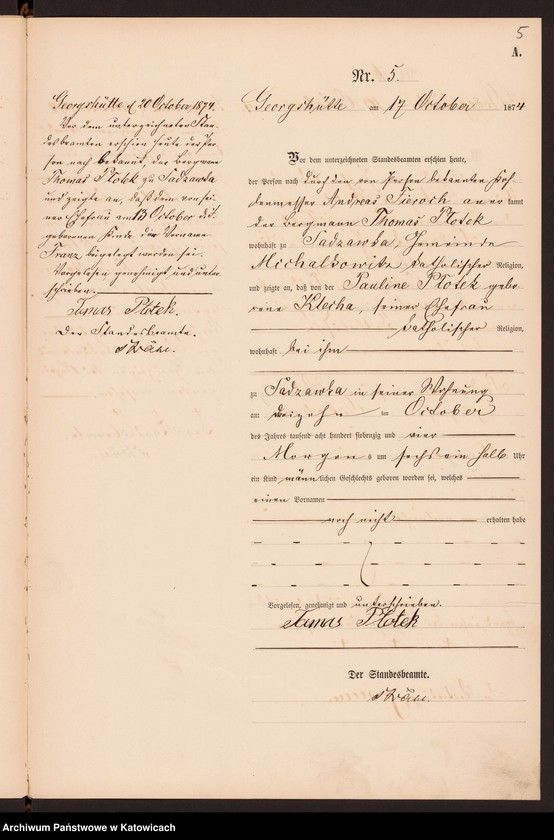 5
A.
Nr. 5.
Georgshütte d 20 October 1874.
Vor dem unterzeichneten Stan-
desbeamten erschien heute der Per-
son nach bekannt, der Bergmann
Thomas Plotek zu Sadzawka
und zeigte an, daß dem von sei-
ner Ehefrau am 13 October dss.
geborenen Kinde der Vorname
Franz beigelegt worden sei.
Vorgelesen genehmigt und unter-
schrieben.
Tomas Plotek.
Der Standesbeamte.
Georgshütte am 17 October 1874
Vor dem unterzeichneten Standesbeamten erschien heute,
der Person nach durch den von Person bekannten
Andreas anerkannt
der Bergmann Thomas Plotek
wohnhaft zu Sadzawka, Gemeinde
Michalkowitz katholischer Religion,
und zeigte an, daß von der Pauline Plotek gebo-
rene Klecha, seiner Ehefrau
katholischer Religion,
wohnhaft bei ihm
zu Sadzawka in seiner Wohnung
am dreizehn ten October
des Jahres tausend acht hundert siebenzig und vier
Morgens um sechs ein halb Uhr
ein Kind männlichen Geschlechts geboren worden sei, welches
einen Vornamen
noch nicht erhalten habe
Vorgelesen, genehmigt und unterschrieben.
Tomas Plotek
Der Standesbeamte.
Archiwum Państwowe w Katowicach